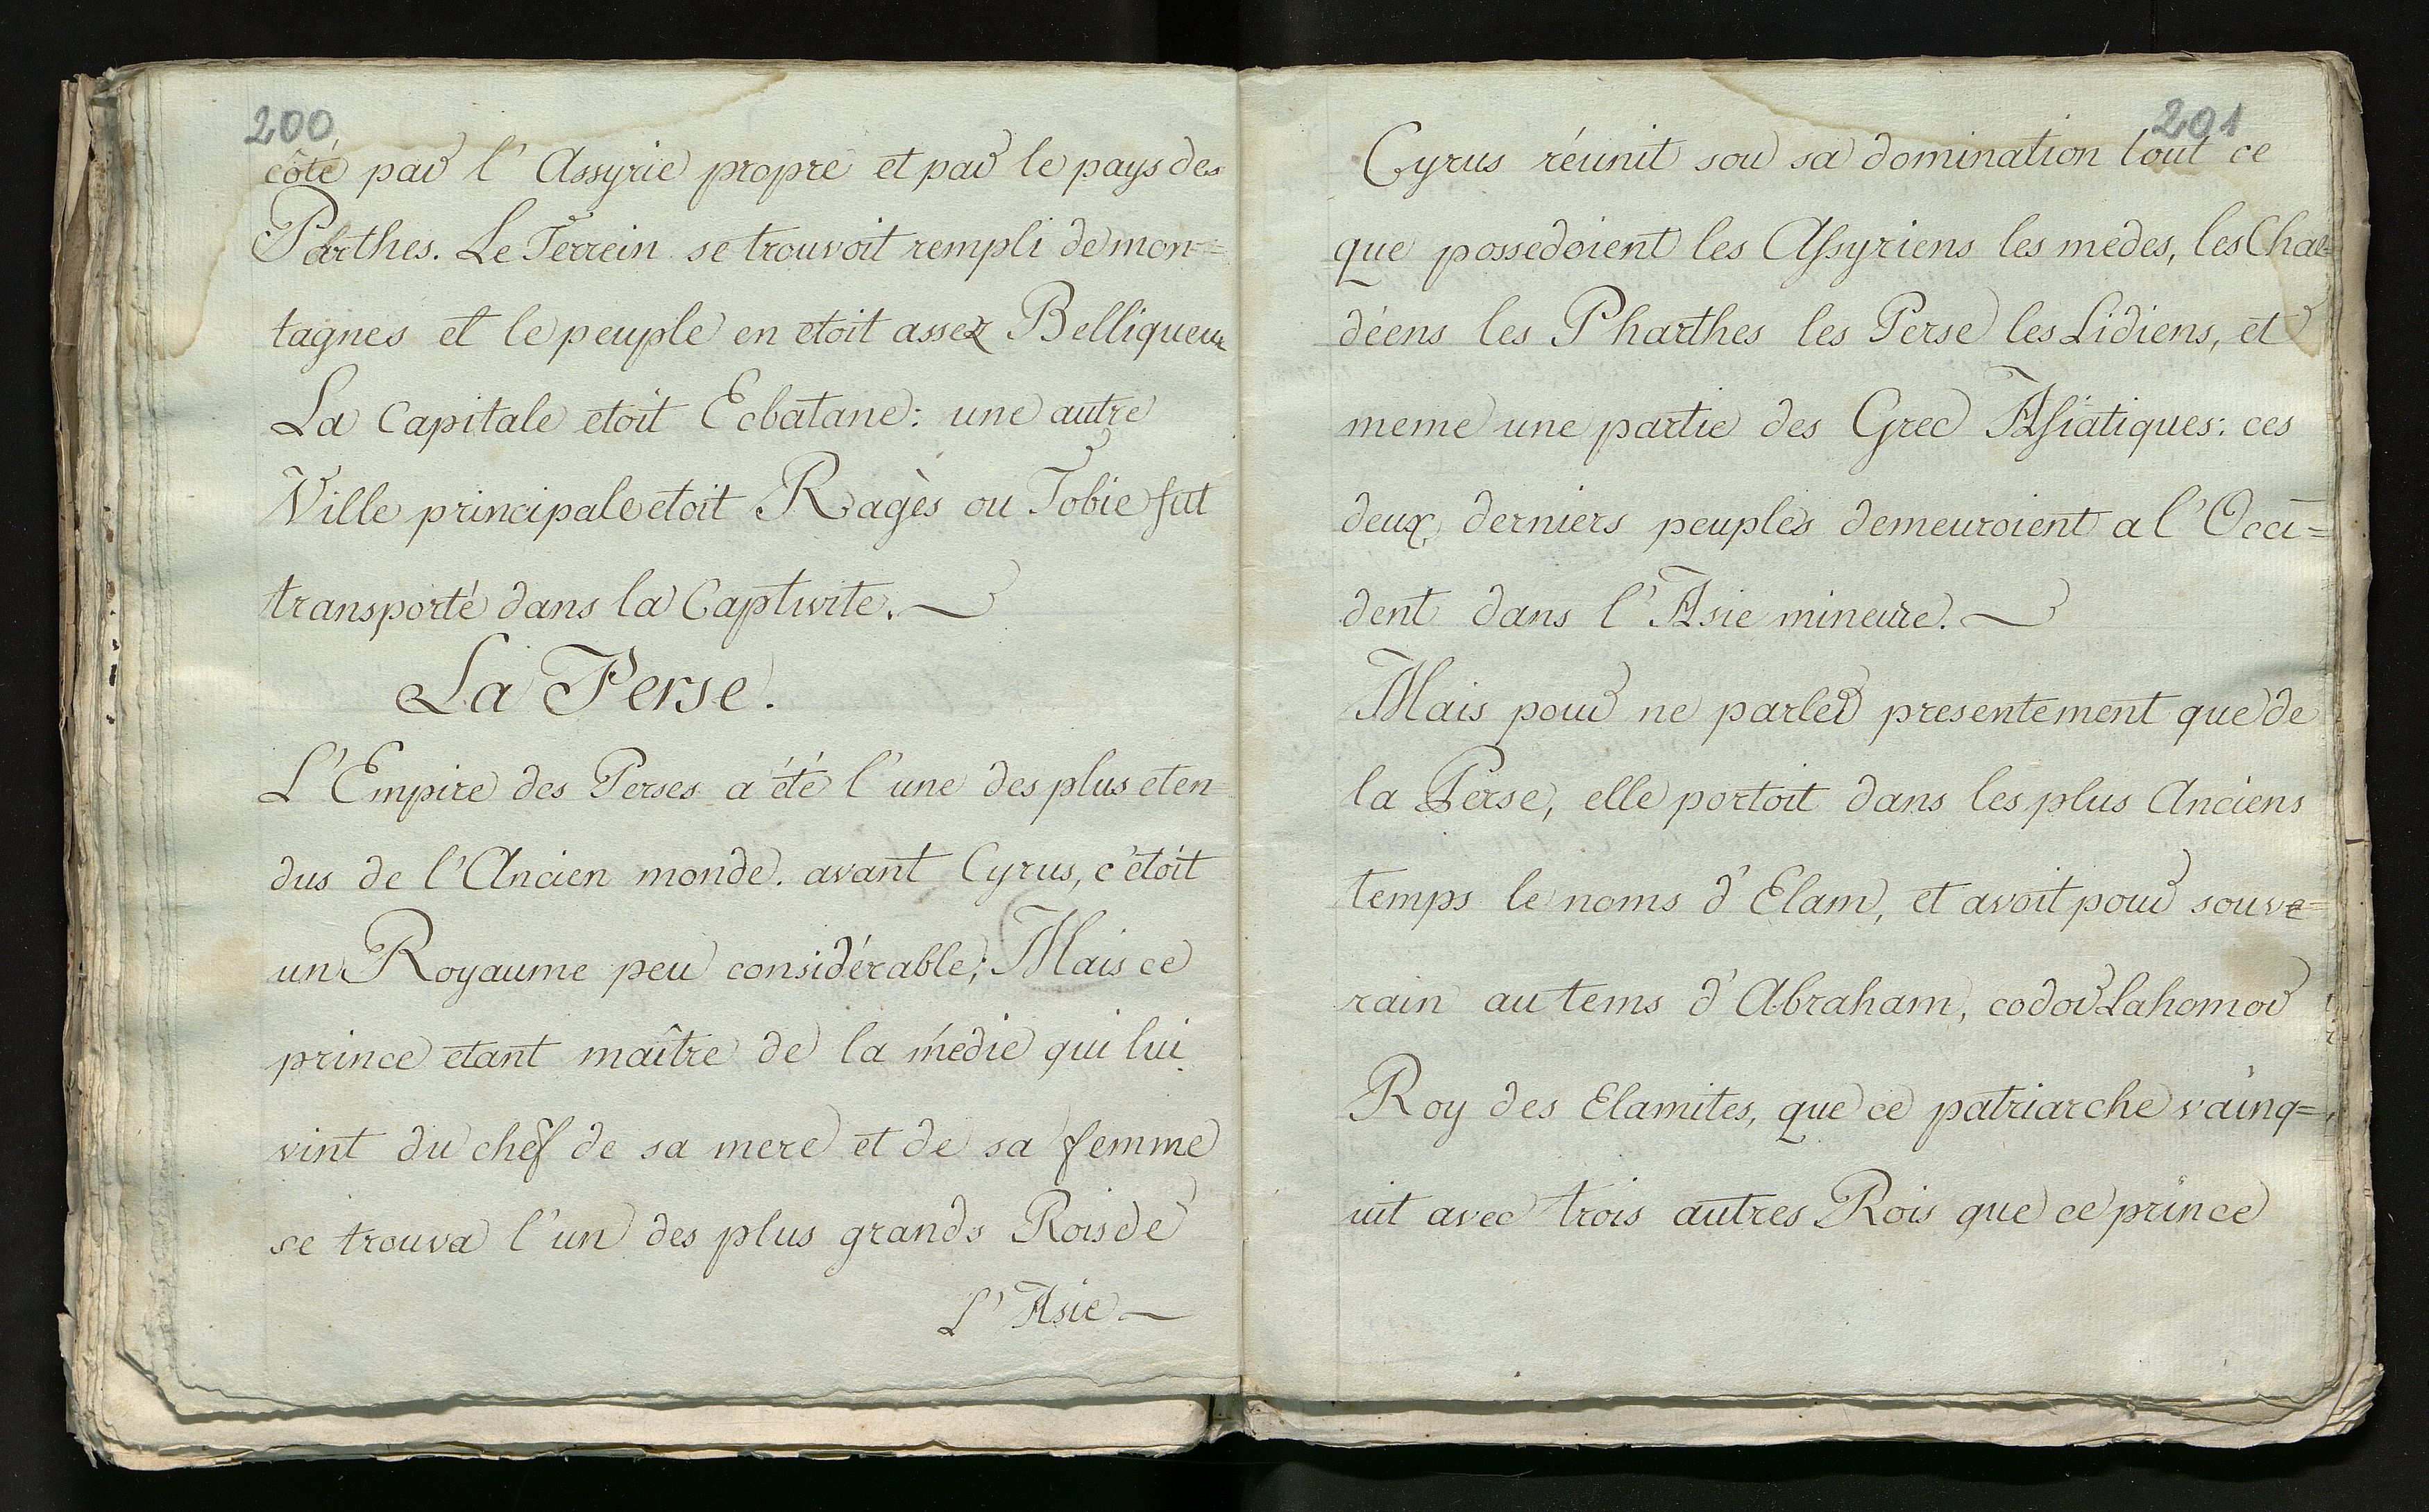 200
côté par l' Assyrie propre et par le pays des
Parthes. Le Terrein se trouvoit rempli de mon=
tagnes et le peuple en etoit assez Belliqueux
La Capitale etoit Ecbatane: une autre
Ville principale etoit Ragès ou Tobie fut
transporté dans la Captivite.
La Perse.
L'Empire des Perses a été l'une des plus eten=
dus de l'Ancien monde. avant Cyrus, c'étoit
un Royaume peu considérable; Mais ce
prince etant maître de la médie qui lui
vint du chef de sa mere et de sa femme
se trouva l'un des plus grands Rois de
L'Asie
201
Cyrus réunit sou sa domination tout ce
que possedoient les Assyriens les medes, les Chal=
déens les Pharthes les Perse les Lidiens, et
meme une partie des Grec Asiatiques: ces
deux derniers peuples demeuroient a l'Occi=
dent dans l'Asie mineure.
Mais pour ne parler presentement que de
la Perse, elle portoit dans les plus Anciens
temps le noms d'Elam, et avoit pour souve=
rain au tems d'Abraham, codor Lahomor
Roy des Elamites, que ce patriarche vainq=
uit avec trois autres Rois que ce prince